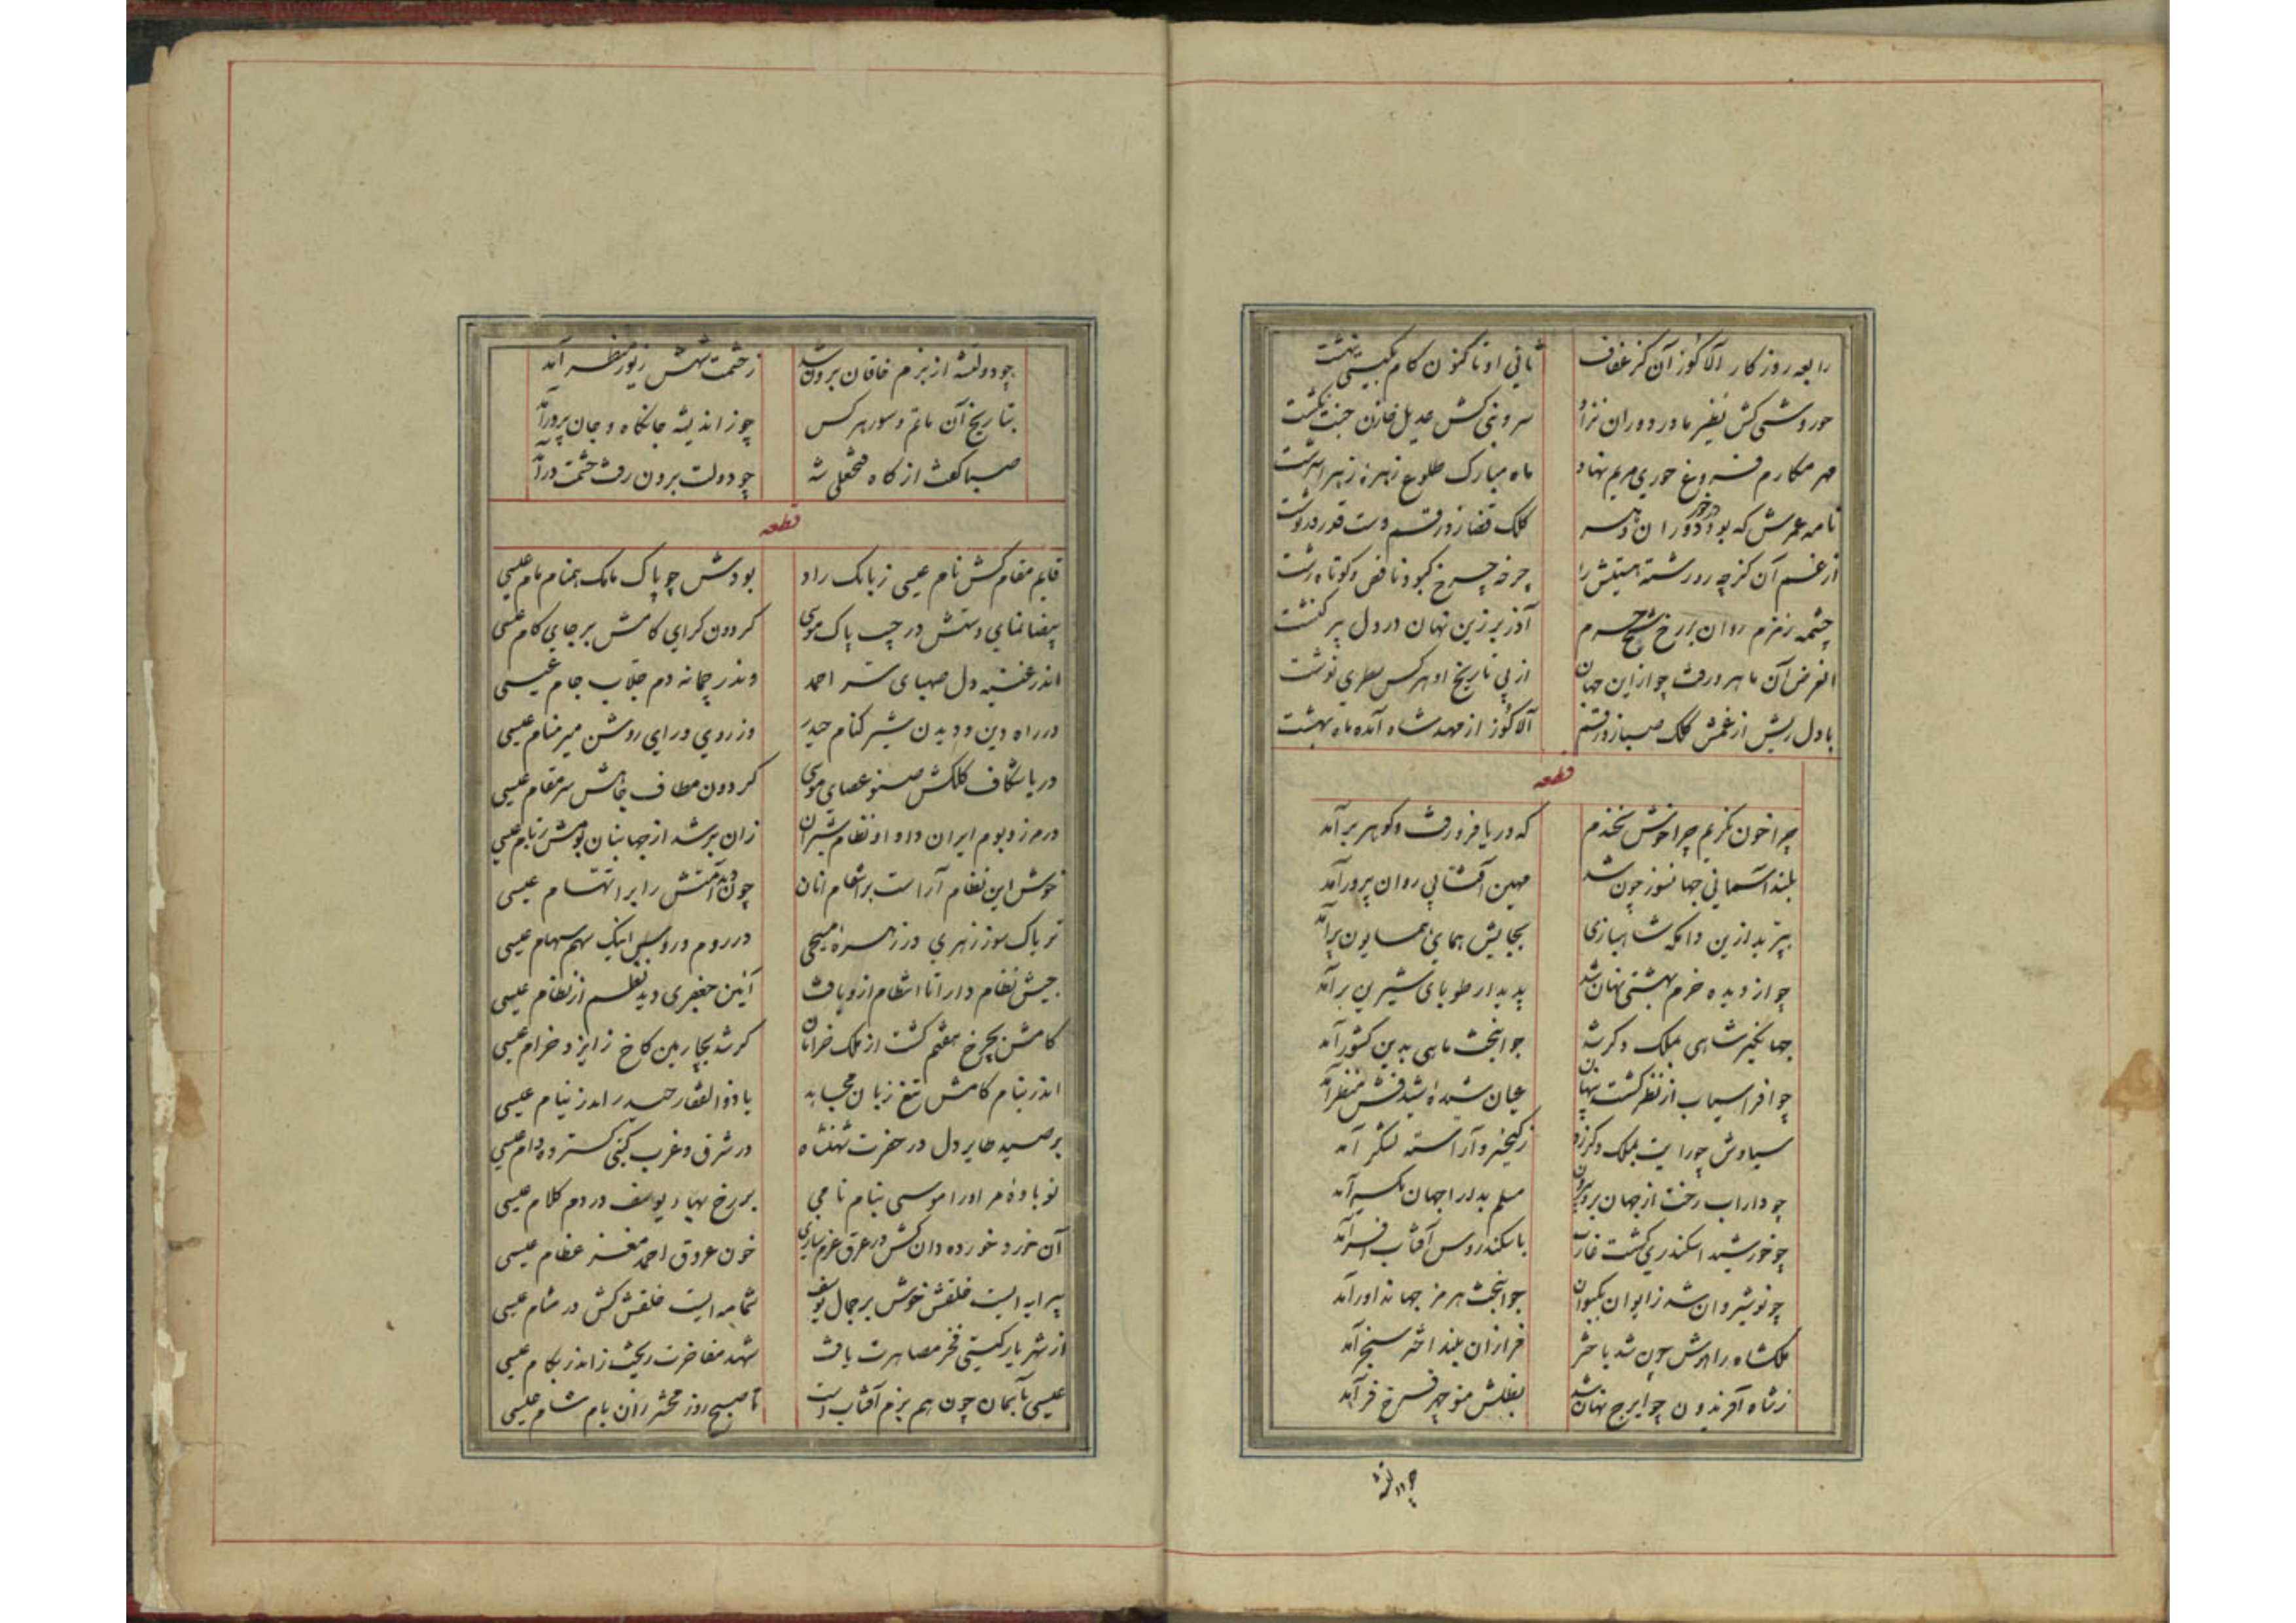 رابعه روزکار آلاکوز آن کز عفاف ثانی او تاکنون کام بکیتی نهشت
حوروشی کش نظیر مادر دوران نزاد سروبنی کش عدیل خازن جنت نکشت
مهر مکارم فروغ حوری مریم نهاد ماه مبارک طلوع زهره زهرا سرشت
نامه عمرش که بود در خور دوران کلک قضا زد رقم دست قدر درنوشت
از غم آن کز چه رو رشته هستیش را چرخه چرخ کبود ناقص و کوتاه رشت
چشمه زمزم روان بر رخ شیخ حرم آذر برزین نهان در دل پیر کنشت
الغرض آن ماهرو رفت چو از این جهان از پی تاریخ او هر کس سطری نوشت
با دل ریش از غمش کلک صبا زد رقم آلاکوز از مهد شاه آمده ماه بهشت
قطعه
چرا خون نکریم چرا خوش نخندم که دریا فرو رفت و کوهر برآمد
بلند آسمانی جهانسوز چون شد مهین آفتابی روان پرور آمد
بپرید ازین دامکه شاهبازی بجایش همای همایون پر آمد
چو از دیده خرم بهشتی نهان شد پدیدار طوبای شیرین بر آمد
جهانکیر شاهی بملک دکر شد جوانبخت ماهی بدین کشور آمد
چو افراسیاب از نظر کشت پنهان عیان شیده اش منظر آمد
سیاوش چو رایت بملک دکر زد ز کیخسرو آراسته لشکر آمد
چو داراب رخت از جهان برد بیرون مسلم بدارا جهان یکسر آمد
چو خورشید اسکندری کشت غارب باسکندروس آفتاب افسر آمد
چو نوشیروان شد ز ایوان بکیوان جوانبخت هرمز جهانداور آمد
ملکشاه را هوش چون شد باختر فرازان بلند اختر سنجر آمد
ز شاه آفریدون چو ایرج نهان شد بظلش منوچهر فرخ فر آمد
چو دولتشه
چو دولتشه از بزم خاقان برون شد ز حشمت شهش زیور منظر آمد
بتاریخ آن ماتم و سور هر کس چو ز اندیشه جانکاه و جان پرور آمد
صبا کفت از کاه فتحعلی شه چو دولت برون رفت حشمت درآمد
قطعه
قایم مقام کش نام عیسی ز بابک راد بودش چو پاک مامک همنام مام عیسی
بیضا نمای دستش در جیب پاک موسی کردون کرای کامش بر جای کام عیسی
اندر قنینه دل صهبای سر احمد وندر چمانه دم جلاب جام عیسی
در راه دین و دیدن شیر کنام حیدر وز روی و رای روشن میر منام عیسی
دریا شکاف کلکش صنو عصای موسی کردون مطاف جاهش سر مقام عیسی
در مرز و بوم ایران داد او نظام شیران زان بر شد از جهانبان عیسی
خوش این نظام آراست بر انتقام آنان چون دید امتش را بر انتهام عیسی
تریاک سوز زهری در زهره مسیحی در روم در اینک سهم سهام عیسی
جیش نظام دارا تا انتظام ازو یافت آئین جعفری دید از نظام عیسی
کامش بچرخ هفتم کشت از ملک خرامان کر شد بچارمین کاخ ز ایزد خرام عیسی
اندر نیام کامش تیغ زبان مجابه با ذوالفقار حیدر اندر نیام عیسی
بر صید طایر دل در حضرت شهنشاه در شرق و غرب کیتی کسترده دام عیسی
نوباوه مر او را موسی بنام نامی بر رخ یوسف در دم کلام عیسی
آن خرد خورده دان کش در عرق خون عروق احمد مغز عظام عیسی
پیرایه ایست خلقش خوش بر جمال یوسف شمامه ایست خلقش کش در مشام عیسی
از شهریار کیتی فخر مصاهرت یافت شهد مفاخرت ریخت زاندر بکام عیسی
عیسی بآسمان چون هم بزم آفتاب است تا صبح روز محشر زان بام شام عیسی